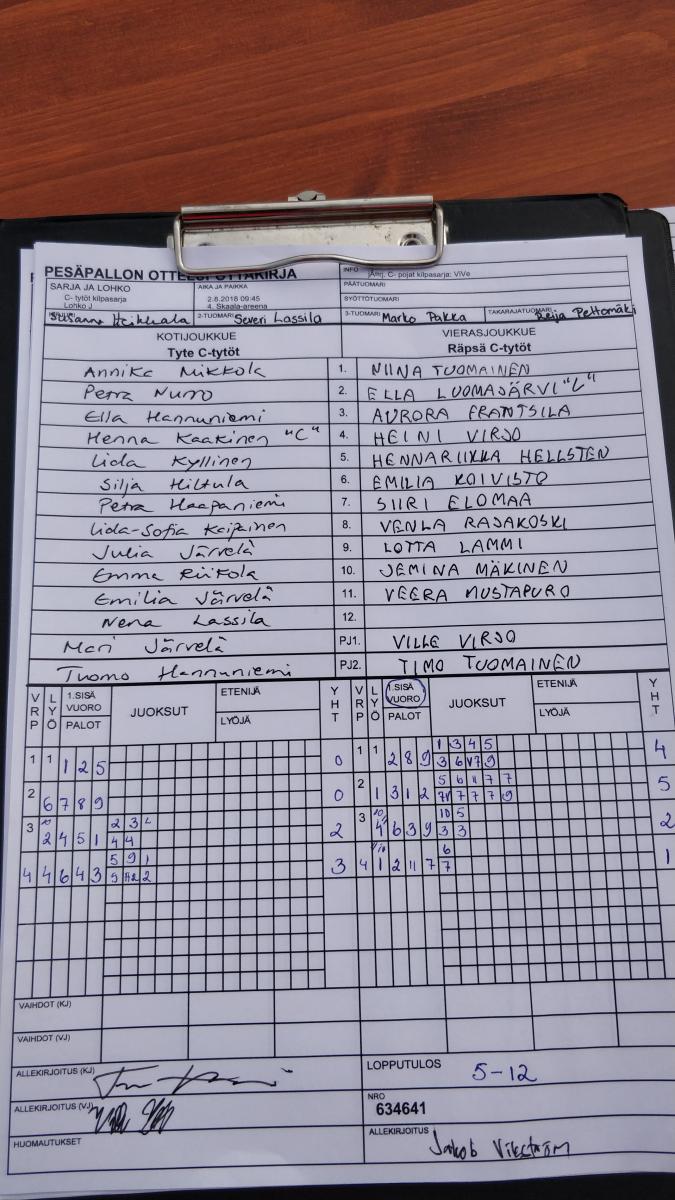 PESÄPALLON OTTELUPÖYTÄKIRJA
INFO
jÄrrj. C- pojat kilpasarja: ViVe
SARJA JA LOHKO
C- tytöt kilpasarja
Lohko J
AIKA JA PAIKKA
2.8.2018 09:45
4. Skaala-areena
PÄÄTUOMARI
SYÖTTÖTUOMARI
Susanna Heikkala
2-TUOMARI Severi Lassila
3-TUOMARI Marko Pakka
TAKARAJATUOMARI Reija Peltomäki
KOTIJOUKKUE
Tyte C-tytöt
VIERASJOUKKUE
Räpsä C-tytöt
Annika Mikkola 1. NIINA TUOMAINEN
Petra Nurro 2. ELLA LUOMAJÄRVI "C"
Ella Hannuniemi 3. AURORA FRANTSILA
Henna Kaakinen "C" 4. HEINI VIRJO
Iida Kyllinen 5. HENNARIIKKA HELLSTEN
Silja Hiltula 6. EMILIA KOIVISTO
Petra Haapaniemi 7. SIIRI ELOMAA
Iida-Sofia Keipinen 8. VENLA RAJAKOSKI
Julia Järvelä 9. LOTTA LAMMI
Emma Riikola 10. JEMINA MÄKINEN
Emilia Järvelä 11. VEERA MUSTAPURO
Nena Lassila 12.
Mari Järvelä PJ1. VILLE VIRJO
Tuomo Hannuniemi PJ2. TIMO TUOMAINEN
VRP LYÖ 1.SISÄ VUORO PALOT JUOKSUT ETENIJÄ LYÖJÄ YHT VRP LYÖ 1.SISÄ VUORO PALOT JUOKSUT ETENIJÄ LYÖJÄ YHT
1 3 4 5
1 1 1 2 5 0 1 1 2 8 9 3 6 9 4
5 6 11 7 7
2 6 7 8 9 0 2 1 3 1 2 7 7 7 9 5
2 3 10 5
3 2 4 5 1 4 4 2 3 4 6 3 9 3 3 2
5 9 1 6
4 4 6 4 3 2 3 4 1 2 11 7 7 1
VAIHDOT (KJ)
VAIHDOT (VJ)
ALLEKIRJOITUS (KJ)
LOPPUTULOS 5-12
ALLEKIRJOITUS (VJ)
NRO
634641
HUOMAUTUKSET
ALLEKIRJOITUS
Jakob Vikström